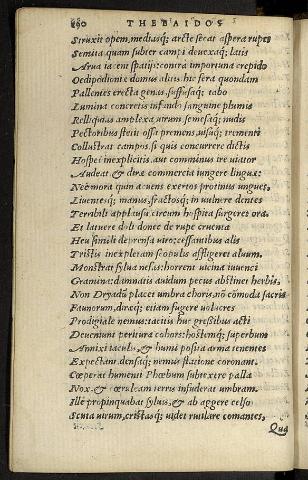 THEBAIDOS
Struxit opem, mediasq; arcte secat aspera rupes
Semita quam subter campi deuexaq; latis
Arua iacent spatijs: contra importuna crepido
Oedipodioniæ domus alitis: hic fera quondam
Pallentes erecta genas, suffusaq; tabo
Lumina concretis infando sanguine plumis
Relliquias amplexa uirum semesaq; nudis
Pectoribus stetit ossa premens, uisuq; trementi
Collustrat campos, si quis concurrere dictis
Hospes inexplicitis, aut comminus ire uiator
Audeat, & diræ commercia iungere linguæ:
Nec mora quin acuens exertos protinus ungues,
Liuentesq; manus, fractosq; in uulnere dentes
Terribili applausu circum hospita surgeret ora.
Et latuere doli donec de rupe cruenta
Heu simili deprensa uiro: cessantibus alis
Tristis inexpletam scopulis affligeret aluum.
Monstrat sylua nefas: horrent uicina iuuenci
Gramina: damnatis auidum pecus abstinet herbis.
Non Dryadū placet umbra choris, nō cōmoda sacris
Faunorum, diræq; etiam fugere uolucres
Prodigiale nemus: tacitis huc gressibus acti
Deueniunt peritura cohors: hostemq; superbum
Annixi iaculis, & humi posita arma tenentes
Expectant, densaq; nemus statione coronant.
Cœperat humenti Phœbum subtexere palla
Nox. & cœruleam terris infuderat umbram.
Ille propinquabat syluis, & ab aggere celso
Scuta uirum, cristasq; uidet rutilare comantes,
Qua